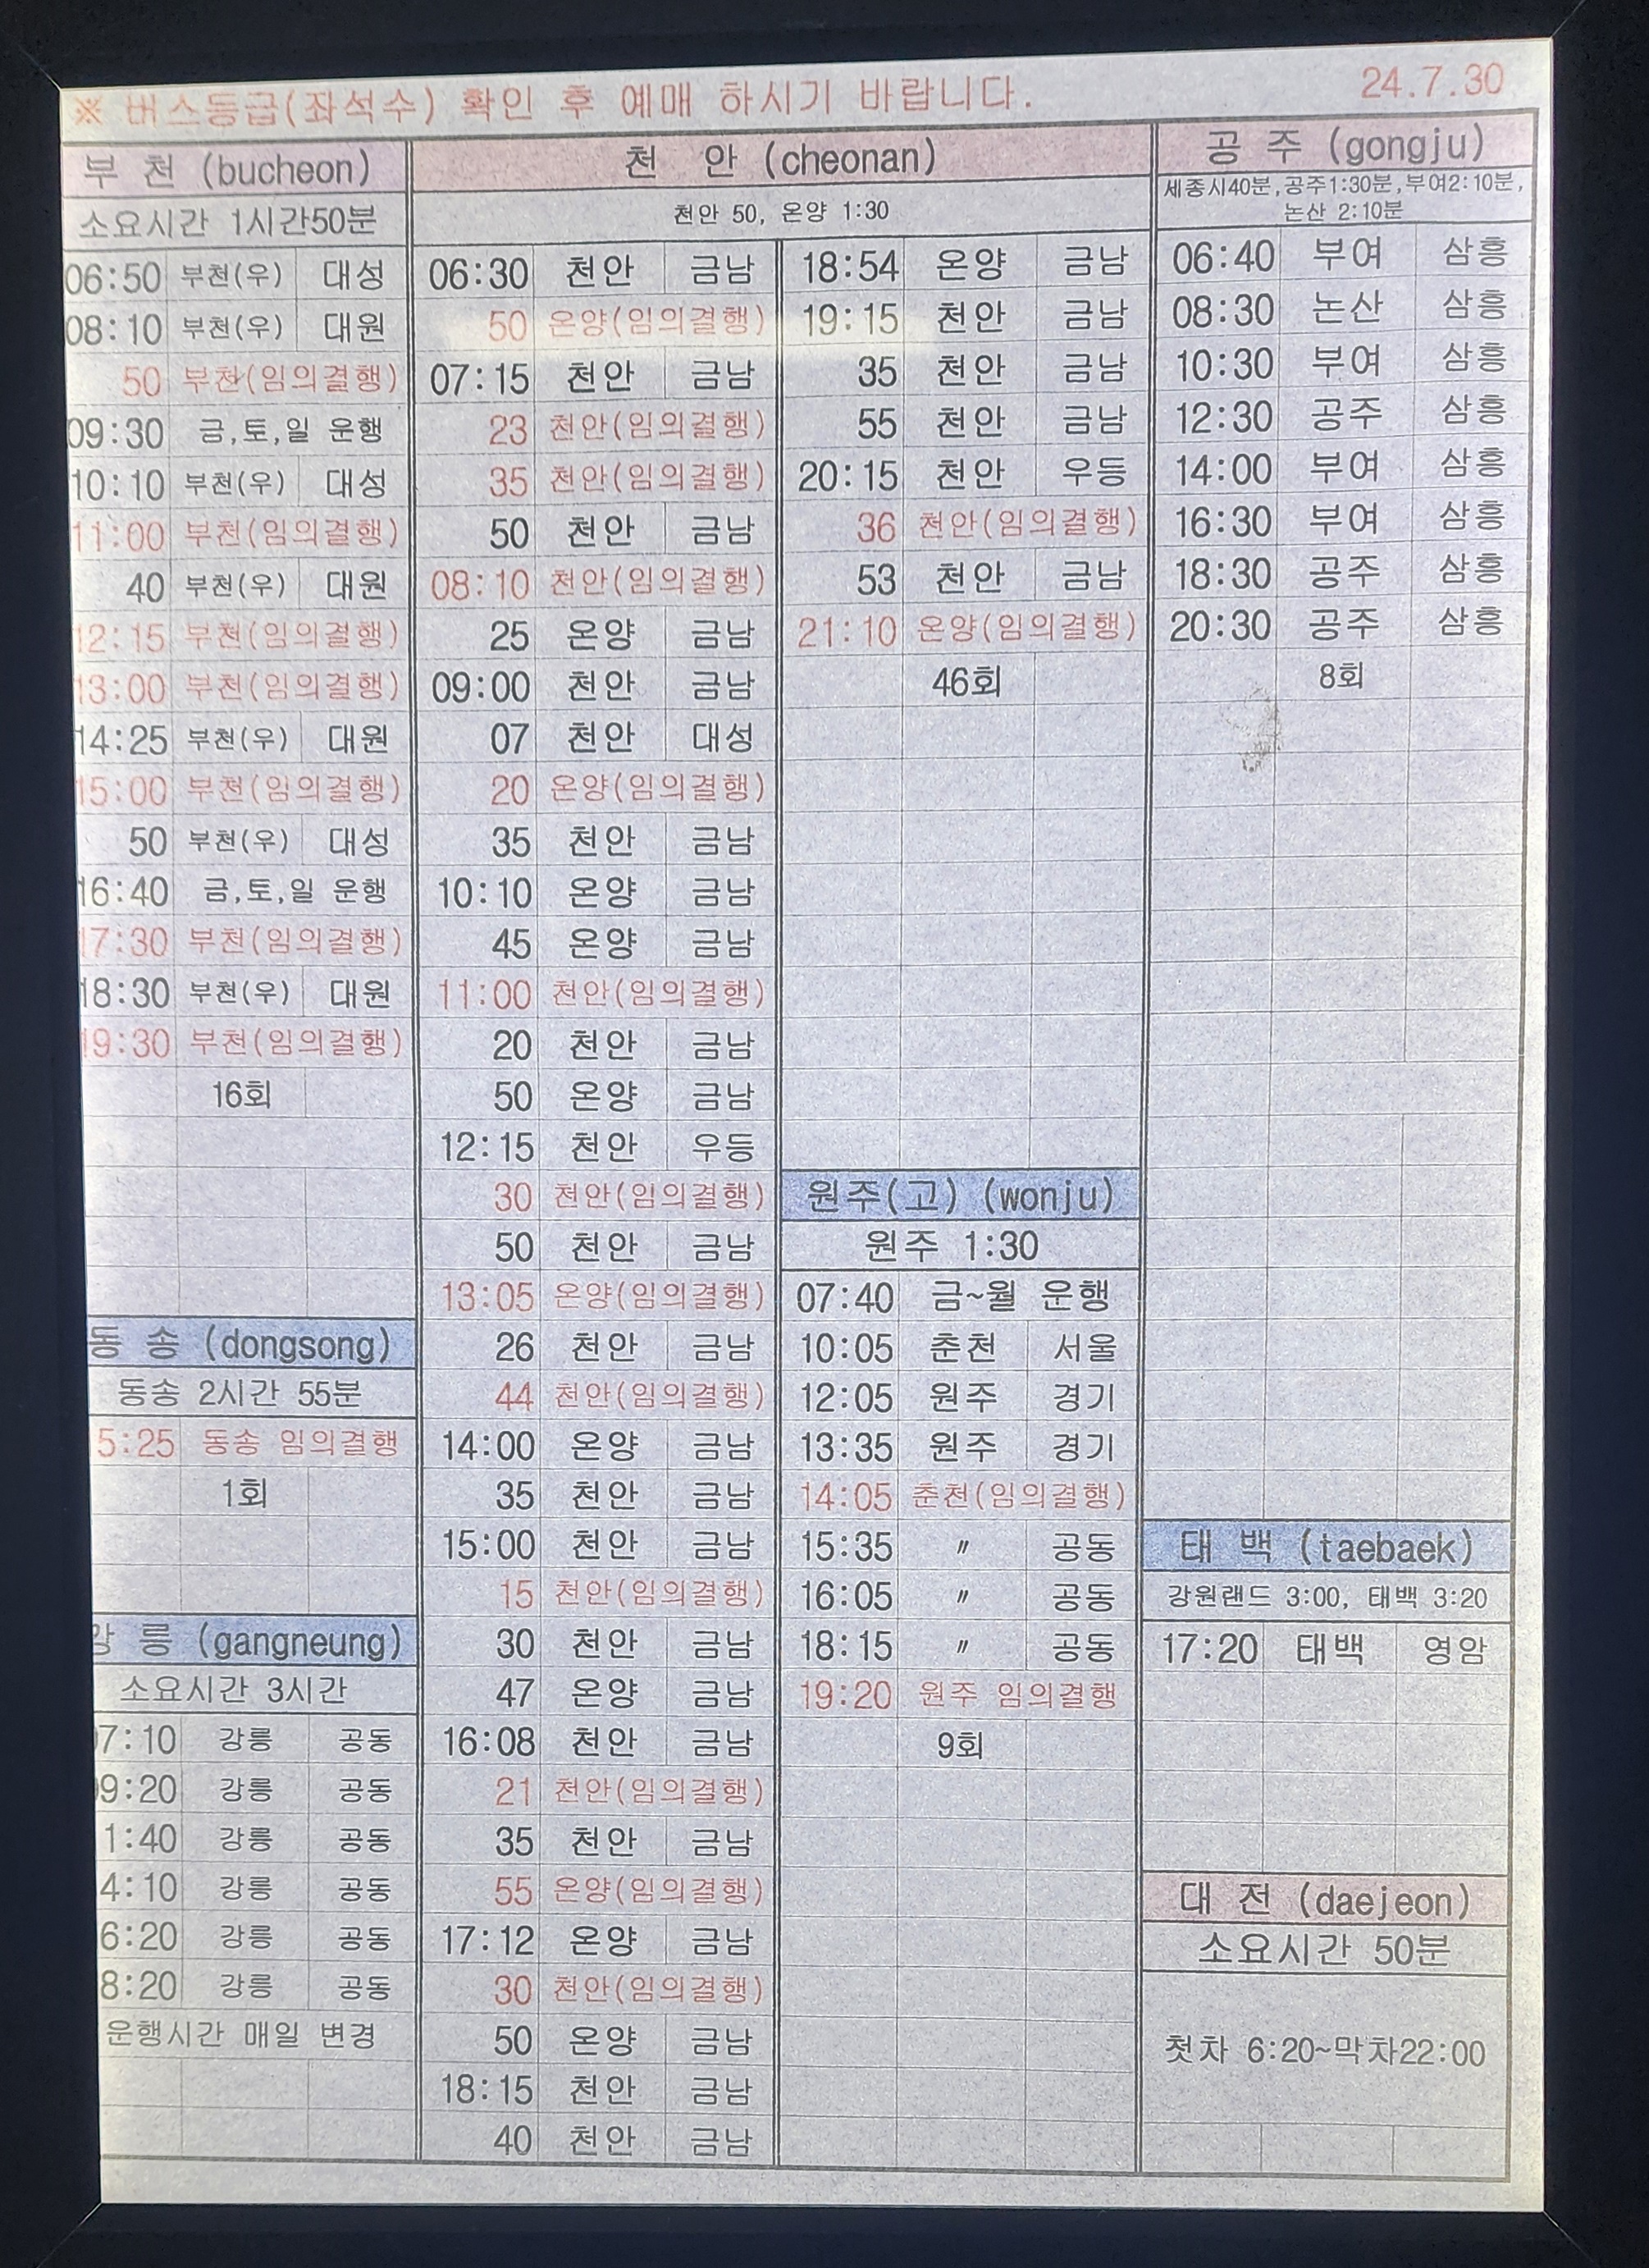 ※ 버스등급(좌석수) 확인 후 예매 하시기 바랍니다.
24.7.30
부 천 (bucheon)
소요시간 1시간50분
06:50 부천(우) 대성
08:10 부천(우) 대원
50 부천(임의결행)
09:30 금,토,일 운행
10:10 부천(우) 대성
11:00 부천(임의결행)
40 부천(우) 대원
12:15 부천(임의결행)
13:00 부천(임의결행)
14:25 부천(우) 대원
15:00 부천(임의결행)
50 부천(우) 대성
16:40 금,토,일 운행
17:30 부천(임의결행)
18:30 부천(우) 대원
19:30 부천(임의결행)
16회
동 송 (dongsong)
동송 2시간 55분
5:25 동송 임의결행
1회
강 릉 (gangneung)
소요시간 3시간
07:10 강릉 공동
09:20 강릉 공동
1:40 강릉 공동
4:10 강릉 공동
6:20 강릉 공동
8:20 강릉 공동
운행시간 매일 변경
천 안 (cheonan)
천안 50, 온양 1:30
06:30 천안 금남
50 온양(임의결행)
07:15 천안 금남
23 천안(임의결행)
35 천안(임의결행)
50 천안 금남
08:10 천안(임의결행)
25 온양 금남
09:00 천안 금남
07 천안 대성
20 온양(임의결행)
35 천안 금남
10:10 온양 금남
45 온양 금남
11:00 천안(임의결행)
20 천안 금남
50 온양 금남
12:15 천안 우등
30 천안(임의결행)
50 천안 금남
13:05 온양(임의결행)
26 천안 금남
44 천안(임의결행)
14:00 온양 금남
35 천안 금남
15:00 천안 금남
15 천안(임의결행)
30 천안 금남
47 온양 금남
16:08 천안 금남
21 천안(임의결행)
35 천안 금남
55 온양(임의결행)
17:12 온양 금남
30 천안(임의결행)
50 온양 금남
18:15 천안 금남
40 천안 금남
18:54 온양 금남
19:15 천안 금남
35 천안 금남
55 천안 금남
20:15 천안 우등
36 천안(임의결행)
53 천안 금남
21:10 온양(임의결행)
46회
원주(고) (wonju)
원주 1:30
07:40 금~월 운행
10:05 춘천 서울
12:05 원주 경기
13:35 원주 경기
14:05 춘천(임의결행)
15:35 〃 공동
16:05 〃 공동
18:15 〃 공동
19:20 원주 임의결행
9회
공 주 (gongju)
세종시40분,공주1:30분,부여2:10분,
논산 2:10분
06:40 부여 삼흥
08:30 논산 삼흥
10:30 부여 삼흥
12:30 공주 삼흥
14:00 부여 삼흥
16:30 부여 삼흥
18:30 공주 삼흥
20:30 공주 삼흥
8회
태 백 (taebaek)
강원랜드 3:00, 태백 3:20
17:20 태백 영암
대 전 (daejeon)
소요시간 50분
첫차 6:20~막차22:00